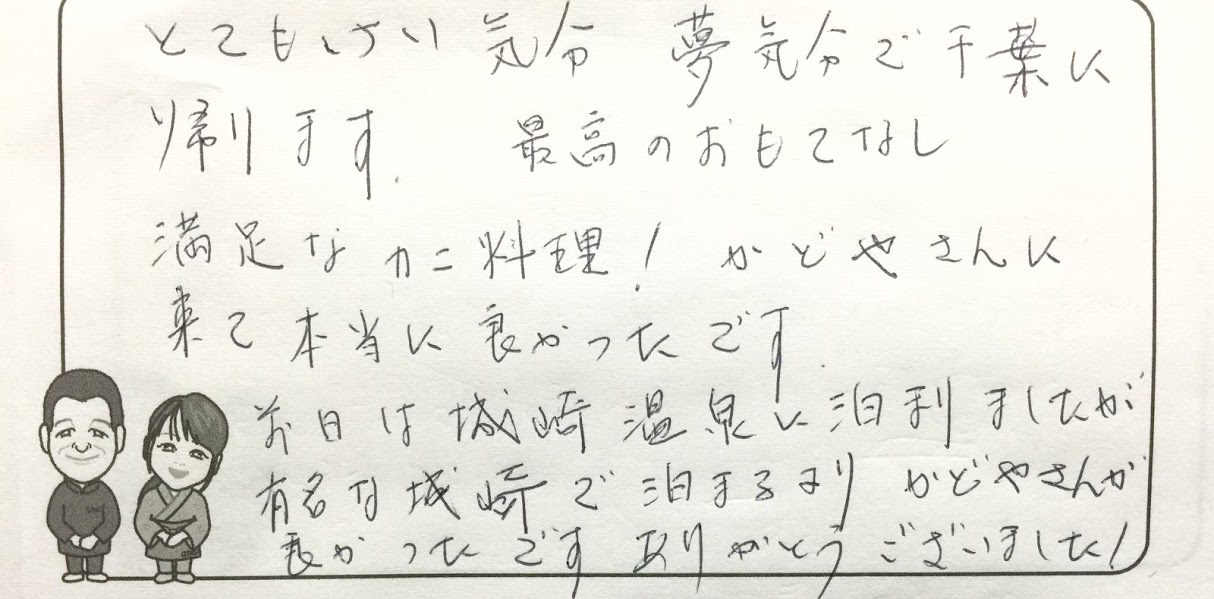 とてもいい気分 夢気分で千葉に
帰ります. 最高のおもてなし
満足なカニ料理! かどやさんに
来て本当に良かったです.
前日は城崎温泉に泊まりましたが
有名な城崎で泊まるより かどやさんが
良かったです ありがとうございました!